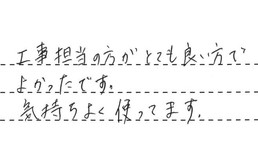 工事担当の方がとても良い方で
よかったです。
気持ちよく使ってます。